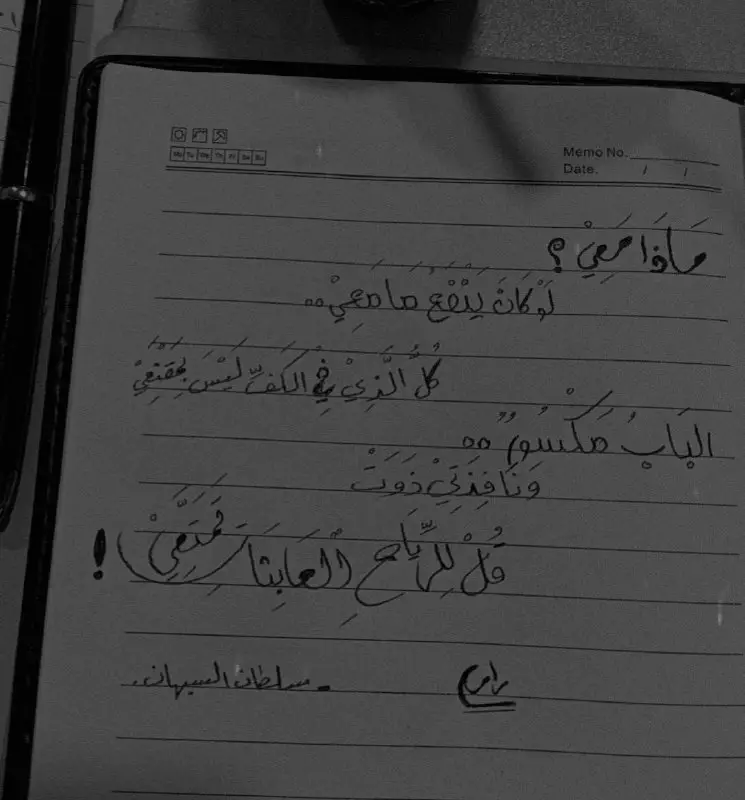 Memo No.
Mo Tu We Th Fr Sa Su
Date. / /
مَاذَا مَعِيْ ؟
لَوْ كَانَ يَنْفَعُ مَا مَعِيْ..
كُلُّ الَّذِيْ فِي الكَفِّ لَيْسَ بِمُقْنِعِيْ
البَابُ مَكْسُوْرٌ ..
وَنَافِذَتِيْ ذَوَتْ
قُلْ لِلرِّيَاحِ الْعَابِثَاتِ تَمَتَّعِيْ !
ـ سلطان السبهان.